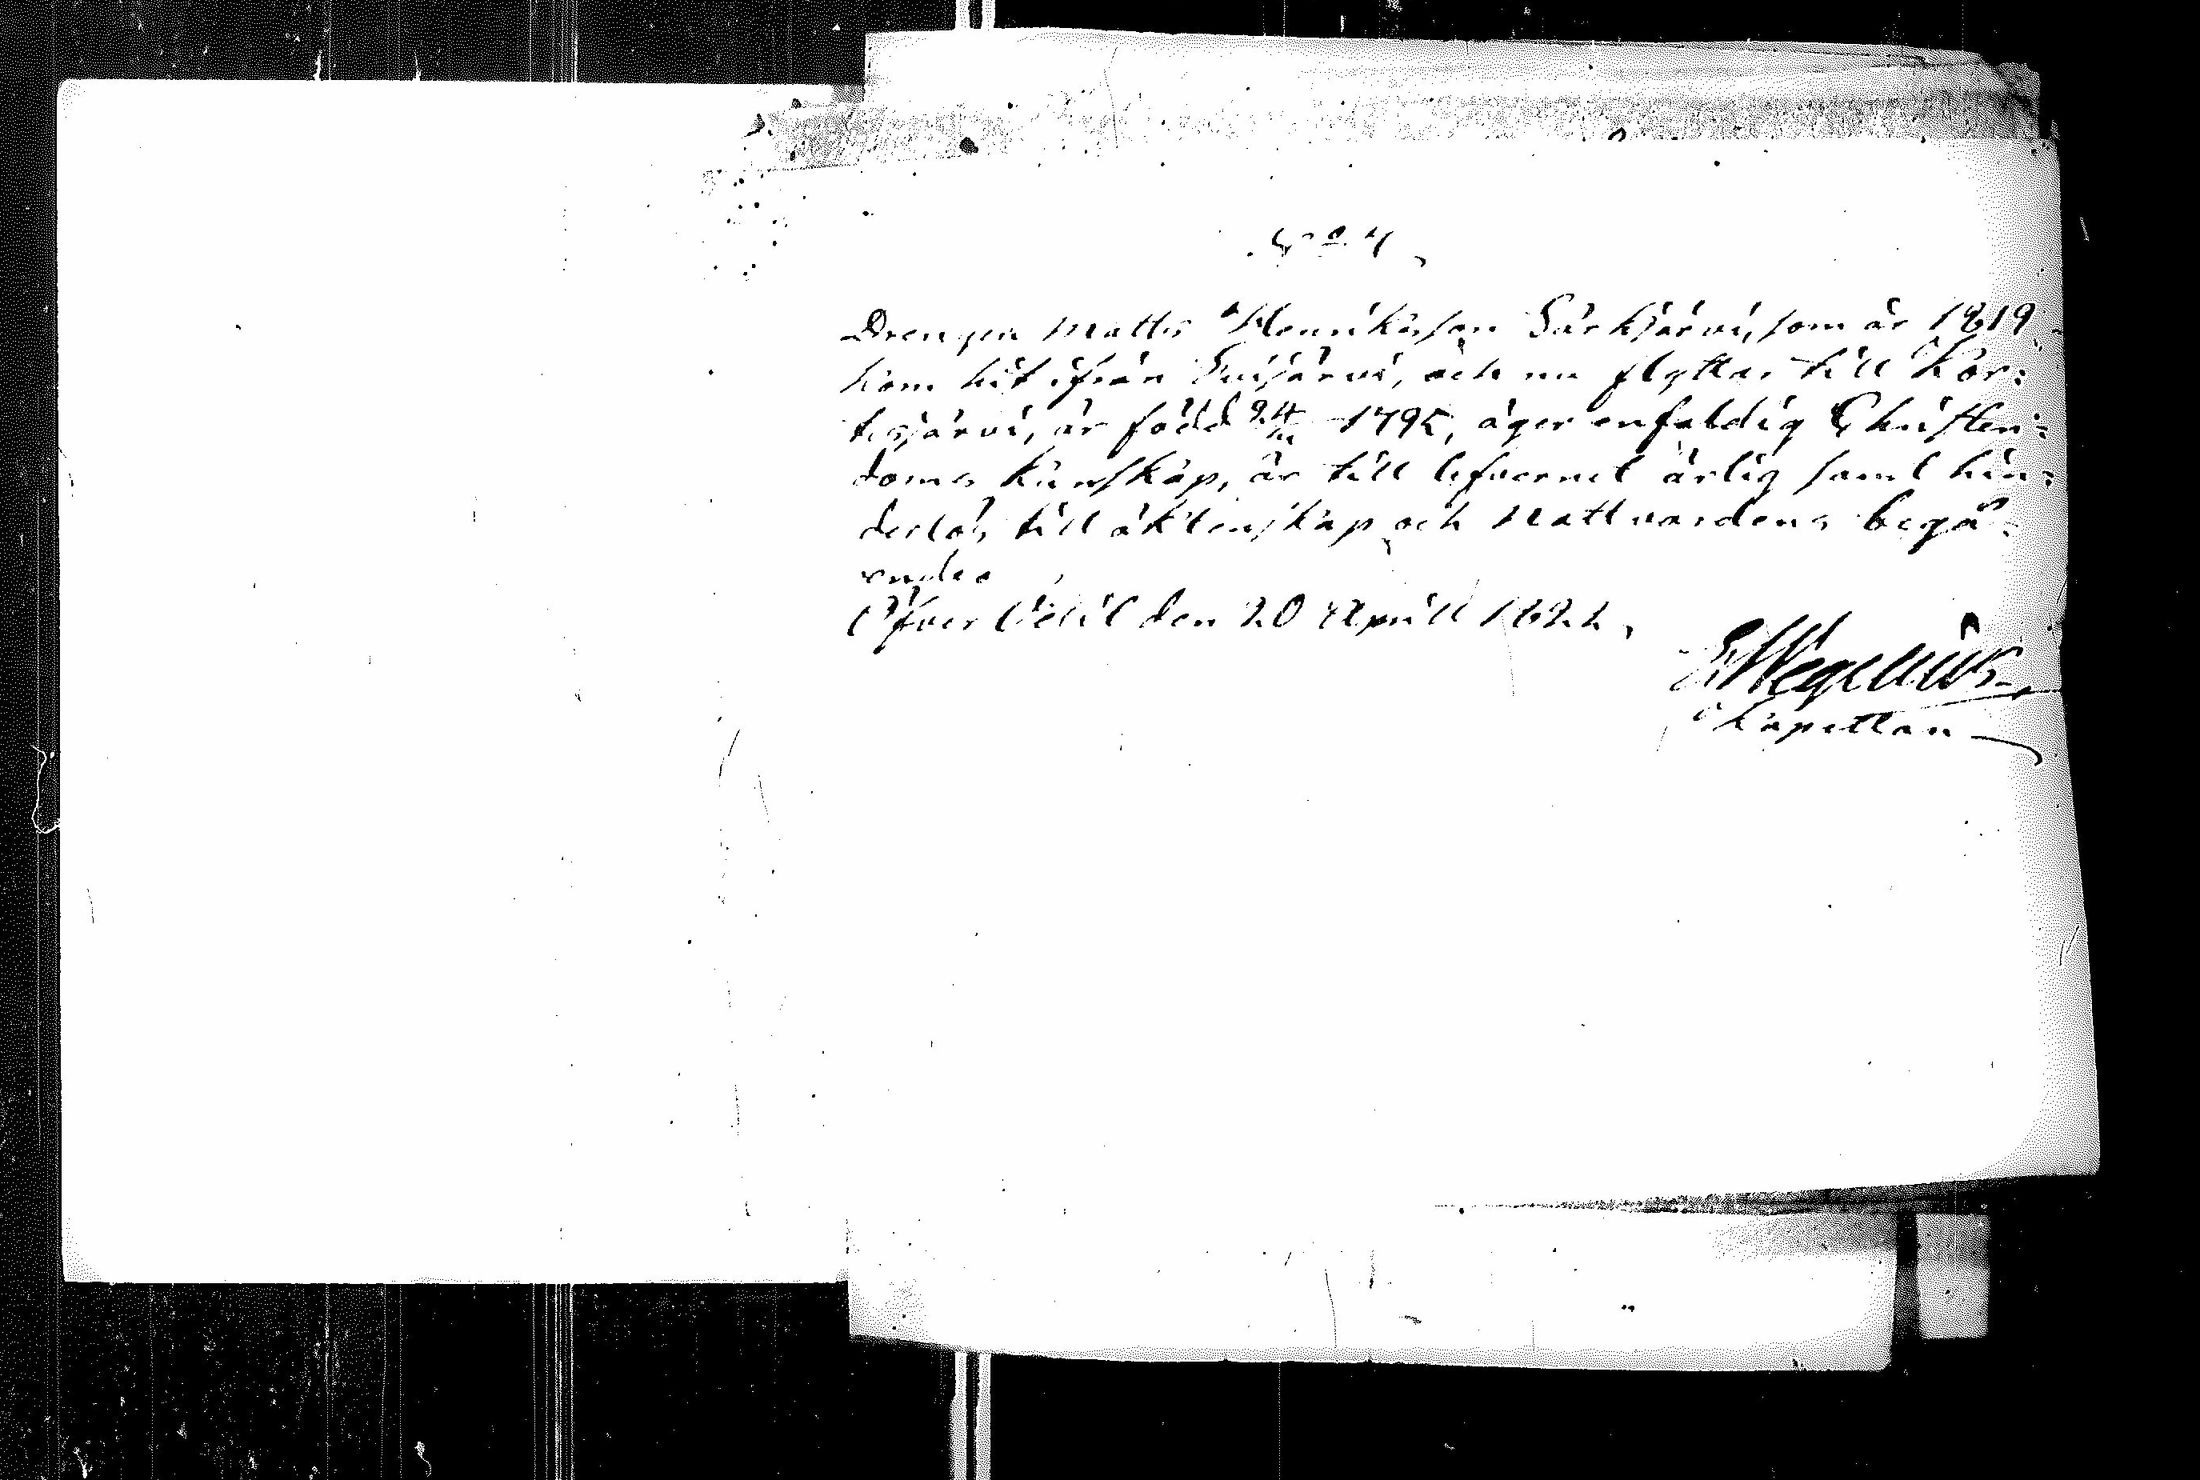 N:o 4,
Drengen Matts Henriksson Särkjärvi, som år 1819
kom hit ifrån Soijärvi, och nu flyttar till Kor:
tesjärvi, är född 24/12 1795, äger enfaldig Christen:
doms kunskap, är till lefvernet ärlig samt hin:
derlös till äktenskap och Nattvardens begå:
ende.
Öfver Vetil den 20 Aprill 1822,
E Wegelius
Kapellan